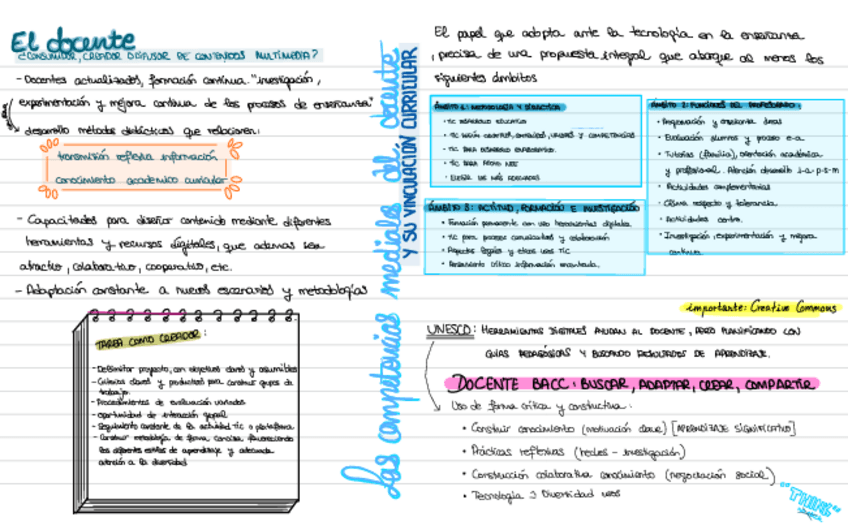 El docente
¿CONSUMIDOR, CREADOR DIFUSOR DE CONTENIDOS MULTIMEDIA?
- Docentes actualizados, formación continua. "investigación,
experimentación y mejora continua de los procesos de enseñanza"
desarrollo métodos didácticos que relacionen:
transmisión reflexiva información
conocimiento académico curricular
- Capacitados para diseñar contenido mediante diferentes
herramientas y recursos digitales, que además sea
atractivo, colaborativo, cooperativo, etc.
- Adaptación constante a nuevos escenarios y metodologías
TAREA COMO CREADOR:
- Delimitar proyecto, con objetivos claros y asumibles
- Criterios claros y productivos para construir grupos de
trabajo.
- Procedimientos de evaluación variados
- Oportunidad de interacción grupal
- Seguimiento constante de la actividad TIC o plataforma
- Construir metodología de forma concisa, favoreciendo
los diferentes estilos de aprendizaje y adecuada
atención a la diversidad
Las competencias mediales del docente
Y SU VINCULACIÓN CURRICULAR
El papel que adopta ante la tecnología en la enseñanza
, precisa de una propuesta integral que abarque al menos los
siguientes ámbitos
ÁMBITO 1: METODOLOGÍA Y DIDÁCTICA
· TIC DESARROLLO EDUCATIVO
· TIC SEGÚN OBJETIVOS, CONTENIDOS, VALORES Y COMPETENCIAS
· TIC PARA DESARROLLO
· TIC PARA APOYO NEE
· ELEGIR LAS MÁS ADECUADAS
ÁMBITO 2: FUNCIONES DEL PROFESORADO:
· Programación y enseñanza áreas
· Evaluación alumnos y proceso e-a
· Tutorías (familia), orientación académica
y profesional. Atención desarrollo i-a-p-s-m
· Actividades complementarias
· Clima respeto y tolerancia.
· Actividades centro.
· Investigación, experimentación y mejora
continua
ÁMBITO 3: ACTITUD, FORMACIÓN E INVESTIGACIÓN
· Formación permanente con uso herramientas digitales.
· TIC para procesos comunicativos y colaboración
· Aspectos legales y éticos usos TIC
· Pensamiento crítico información encontrada.
importante: Creative Commons
UNESCO: HERRAMIENTAS DIGITALES AYUDAN AL DOCENTE, PERO PLANIFICANDO CON
GUÍAS PEDAGÓGICAS Y BUSCANDO RESULTADOS DE APRENDIZAJE.
DOCENTE BACC: BUSCAR, ADAPTAR, CREAR, COMPARTIR
Uso de forma crítica y constructiva:
· Construir conocimiento (motivación clave) [APRENDIZAJE SIGNIFICATIVO]
· Prácticas reflexivas (redes - investigación)
· Construcción colaborativa conocimiento (negociación social)
· Tecnología > Diversidad usos